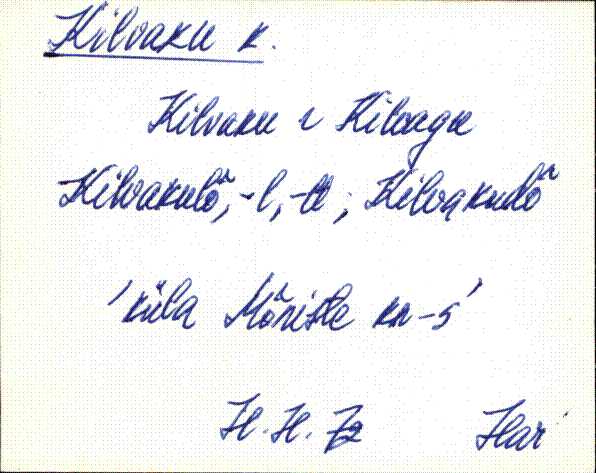 Kilvaku k.
Kilvaku ~ Kilvagu
Kilvakulõ, -l, -lt; Kilvakudõ
'küla Mõniste kn-s'
H. H. 72 Har